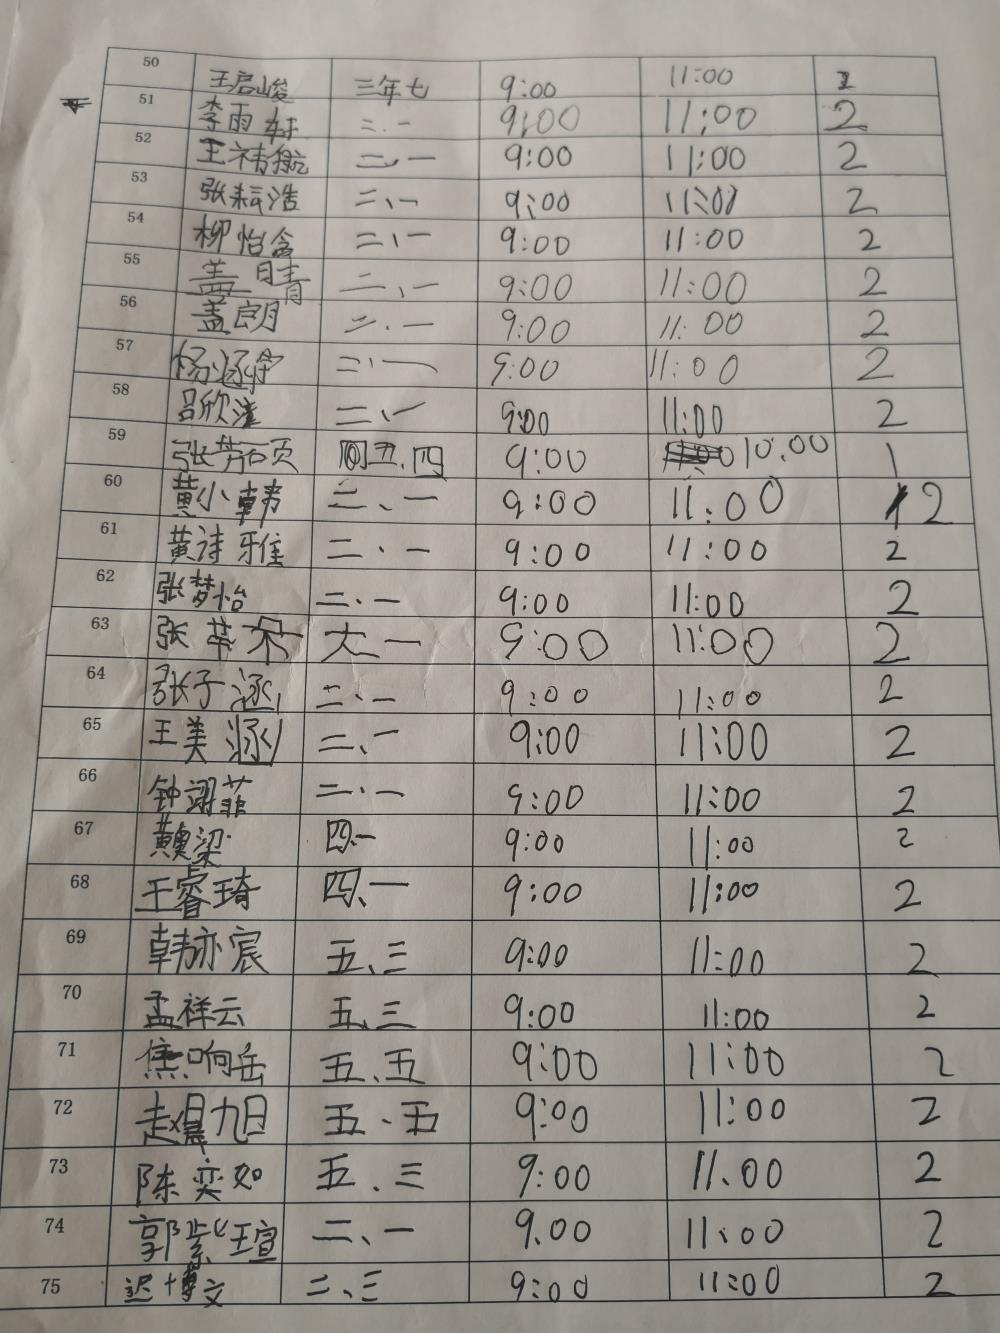 50 王启峻 三年七 9:00 11:00 2
51 李雨轩 二、一 9:00 11:00 2
52 王祷航 二、一 9:00 11:00 2
53 张耘浩 二、一 9:00 11:00 2
54 柳怡含 二、一 9:00 11:00 2
55 盖晴 二、一 9:00 11:00 2
56 盖朗 二、一 9:00 11:00 2
57 杨涵 二、一 9:00 11:00 2
58 吕欣 二、一 9:00 11:00 2
59 张芳硕 五、四 9:00 10:00 1
60 黄小韩 二、一 9:00 11:00 2
61 黄诗雅 二、一 9:00 11:00 2
62 张梦怡 二、一 9:00 11:00 2
63 张 朵 大一 9:00 11:00 2
64 张子涵 二、一 9:00 11:00 2
65 王美涵 二、一 9:00 11:00 2
66 钟翊菲 二、一 9:00 11:00 2
67 黄奥梁 四、一 9:00 11:00 2
68 王睿琦 四、一 9:00 11:00 2
69 韩亦宸 五、三 9:00 11:00 2
70 孟祥云 五、三 9:00 11:00 2
71 焦响岳 五、五 9:00 11:00 2
72 赵晨旭 五、五 9:00 11:00 2
73 陈奕如 五、三 9:00 11:00 2
74 郭紫瑄 二、一 9:00 11:00 2
75 迟博文 二、三 9:00 11:00 2